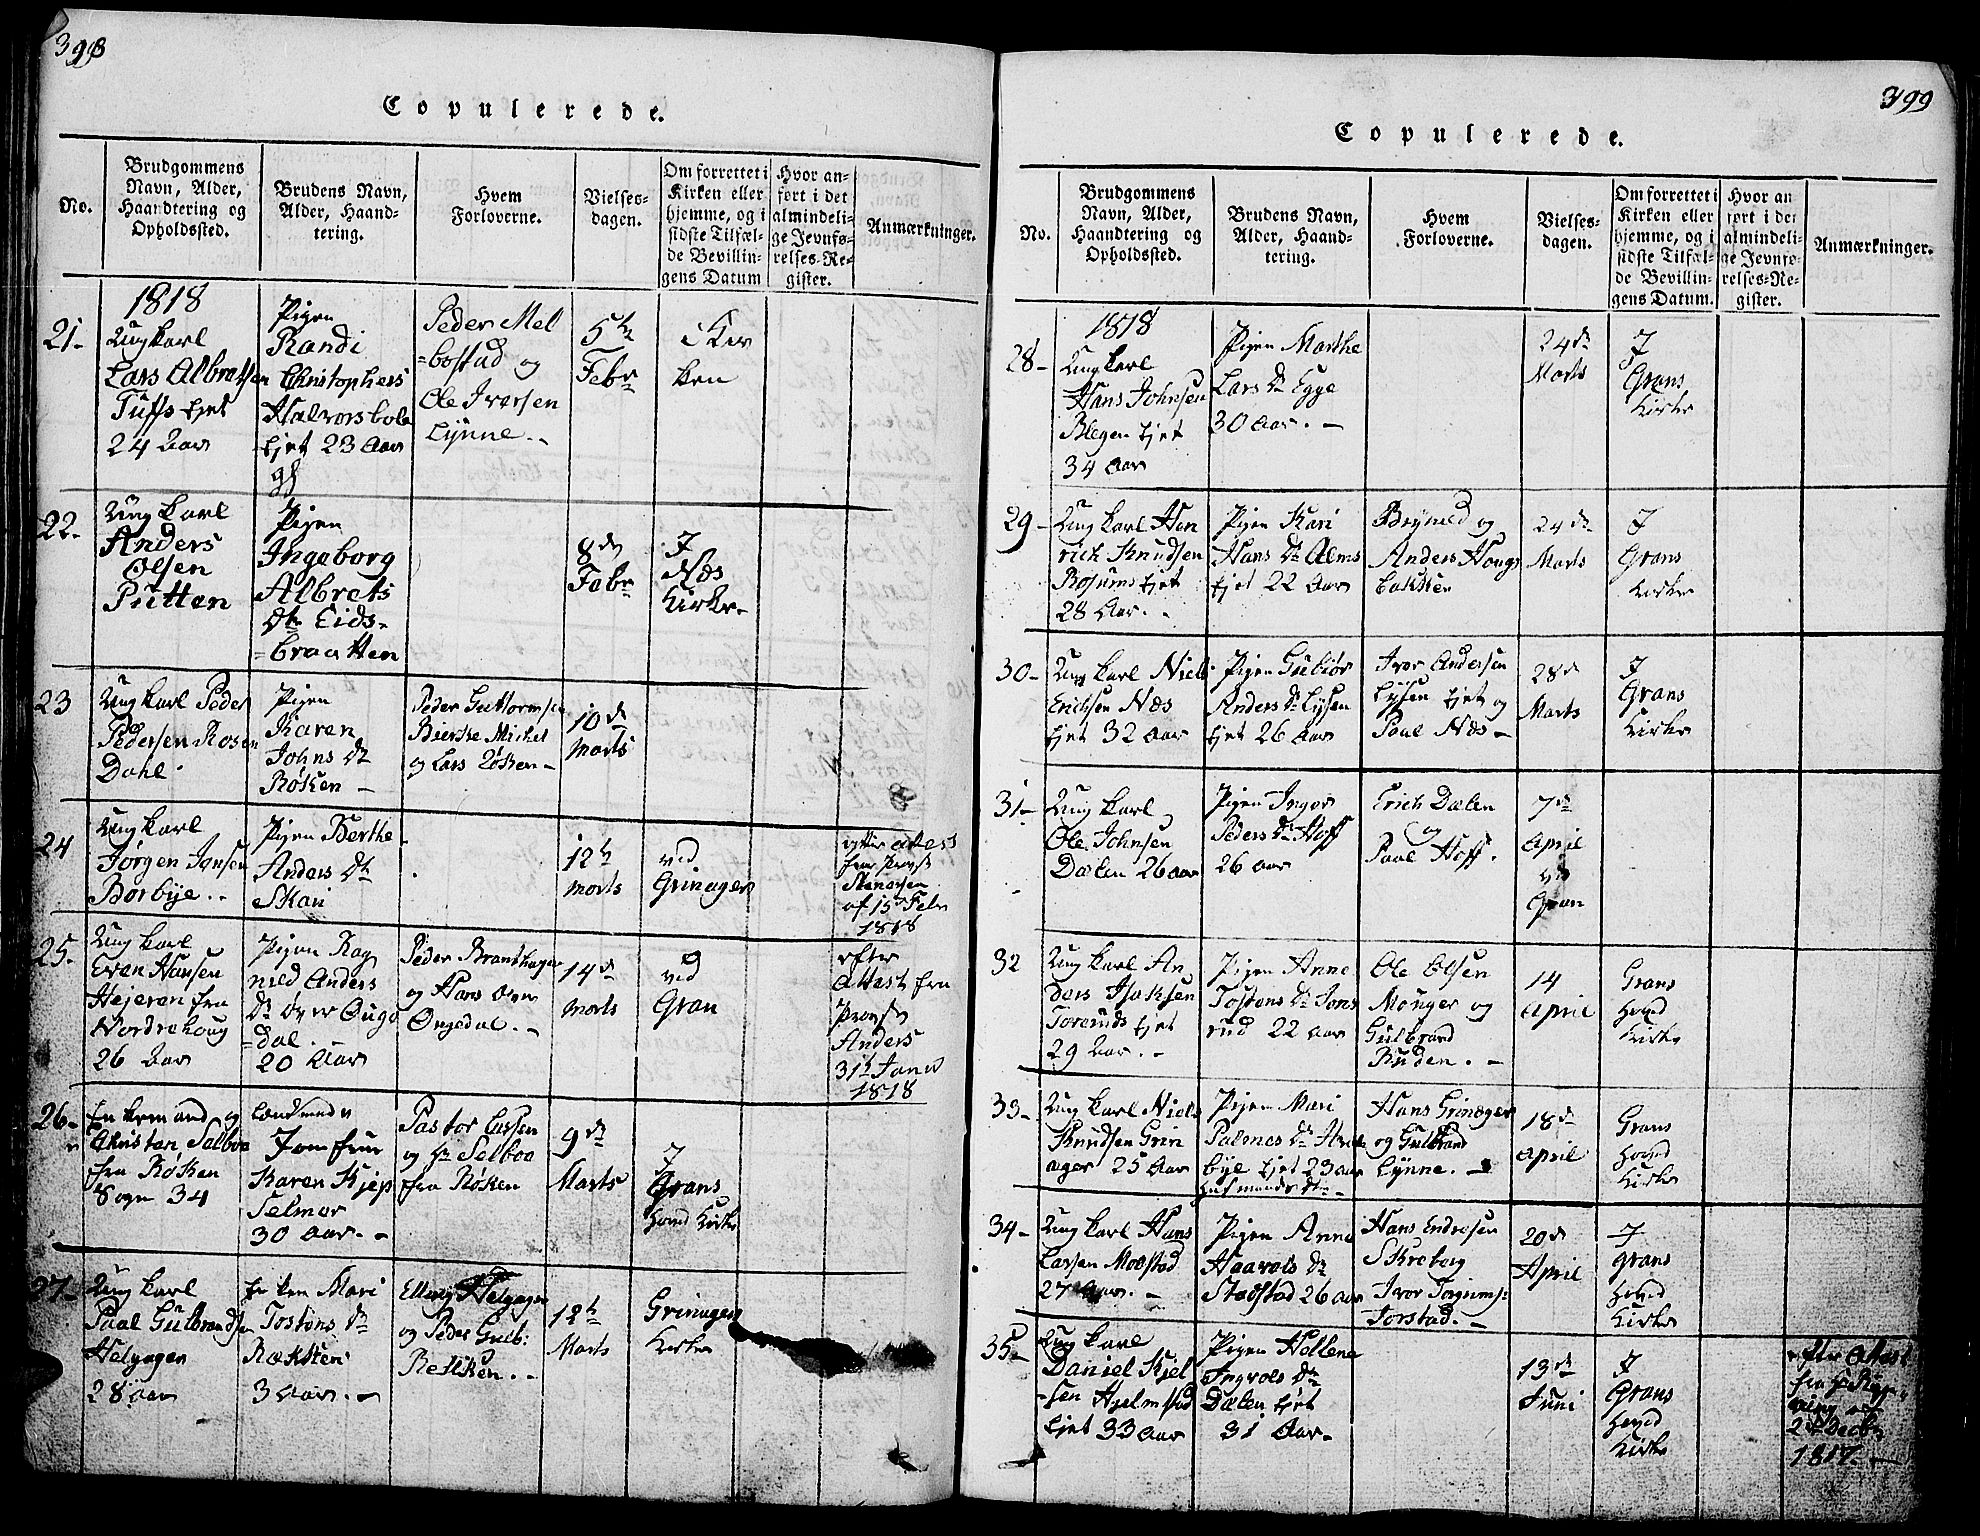 398
Copulerede.
No.
Brudgommens
Navn, Alder,
Haandtering og
Opholdssted.
Brudens Navn,
Alder, Haand-
tering.
Hvem
Forloverne.
Vielses-
dagen.
Om forrettet i
Kirken eller
hjemme, og i
sidste Tilfæl-
de Bevillin-
gens Datum
Hvor an-
ført i det
almindeli-
ge Jevnfø-
relses-Re-
gister.
Anmærkninger.
1818
21-
Ungkarl
Lars Albretsen
Tuffs Ejet
24 Aar
Pigen
Randi
Christophers
Halvorsbole
Ejet 23 Aar
Peder Mel
=bostad og
Ole Iversen
Lynne.-
5te
Febr
i Kir
ken
22-
Ungkarl
Anders
Olsen
Putten
Pigen
Ingeborg
Albrets
Dtr Eids-
=braatten
8de
Febr
I
Næs
Kirke-
23
Ungkarl Peder
Pedersen Rosen
Dahl.
Pigen
Karen
Johns Dtr
Røken -
Peder Guttormsen
Bierke Michel
og Lars Røken -
10de
Marts
24
Ungkarl
Jørgen Jansen
Borbye.-
Pigen Berthe
Anders Dtr
Skari
12te
Marts
ved
Grinager
efter attest
fra Provst
Stenersen
af 15de Febr
1818
25-
Ungkarl
Even Hansen
Hejeren fra
Nordrehoug
26 Aar
Pigen Rag
nild Anders
Dtr Øvre Ouge
=dal.
20 Aar
Peder Branthager
og Hans Øvre
Ongedal.-
14de
Marts
ved
Gran
efter
Attest fra
Provst
Anders
31te Janu
1818
26-
Enkemand og
Christen Selboe
fra Røken
Sogn 34
Landmand
Jomfrue
Karen Kjep
Selmer
30 Aar.-
Pastor Larsen
og Hr Selboe
fra Røken
9de
Marts
I
Grans
Hoved Kirke
27-
Ungkarl
Paal Gulbrandsen
Helgager
28 Aar
Enken Mari
Tostens Dtr
Rækken
3 Aar.-
Elling Helgager
og Peder Gulb:
Rekken.-
12te
Marts
Grinager
Kirke
399
Copulerede.
No.
Brudgommens
Navn, Alder,
Haandtering og
Opholdssted.
Brudens Navn,
Alder, Haand-
tering.
Hvem
Forloverne.
Vielses-
dagen.
Om forrettet i
Kirken eller
hjemme, og i
sidste Tilfæl-
de Bevillin-
gens Datum.
Hvor an
ført i det
almindeli-
ge Jevnfø-
relses-Re-
gister.
Anmærkninger.
1818
28-
Ungkarl
Hans Johnsen
Blegen Ejet
34 Aar
Pigen Marthe
Lars Dtr Egge
30 Aar.-
24de
Marts
I
Grans
Kirke
29-
Ungkarl Hen
rich Knudsen
Rosums Ejet
28 Aar.-
Pigen Kari
Hans Dtr Alms
Ejet 22 Aar
Brynild og
Anders Hougs
bakken
24de
Marts
I
Grans
Kirke
30-
Ungkarl Niels
Erichsen Næs
Ejet 32 Aar
Pigen Gubiør
Anders Dtr Lysen
Ejet 26 Aar
Iver Andersen
Lysen Ejet og
Paal Næs-
28de
Marts
I
Grans
Kirke
31-
Ungkarl
Ole Johnsen
Dælen 26 aar
Pigen Inger
Peders Dtr Hoff
26 aar
Erich Dælen
og
Paal Hoff.
7de
April
ved
Gran
32
Ungkarl An
ders Isaksen
Torsruds Ejet
29 Aar.-
Pigen Anne
Tostens Dtr Jons
rud 22 aar
Ole Olsen
Monger og
Gulbrand
Ruden.-
14
April
Grans
Hoved
Kirke
33-
Ungkarl Niels
Knudsen Grin
ager 25 Aar
Pigen Mari
Palmes Dtr
bye Ejet 23 aar
Husmands Dtr-
Hans Grinager
og Gulbrand
Lynne.-
18de
April
Grans
Hoved
Kirke
34-
Ungkarl Hans
Larsen Molstad
27 Aar.-
Pigen Anne
Haavols Dtr
Stadstad 26 aar
Hans Endresen
Skreberg
Iver Torgrims:
Torstad.-
20de
April
I
Grans
Hoved
Kirke
35-
Ungkarl
Daniel Kjel
=sen Hjelmstad
Ejet 33 aar
Pigen Hellene
Ingvols Dtr
Dælen Ejet
31 Aar-
13de
Juni
I
Grans
Hoved
Kirke
efter Attest
1817.-